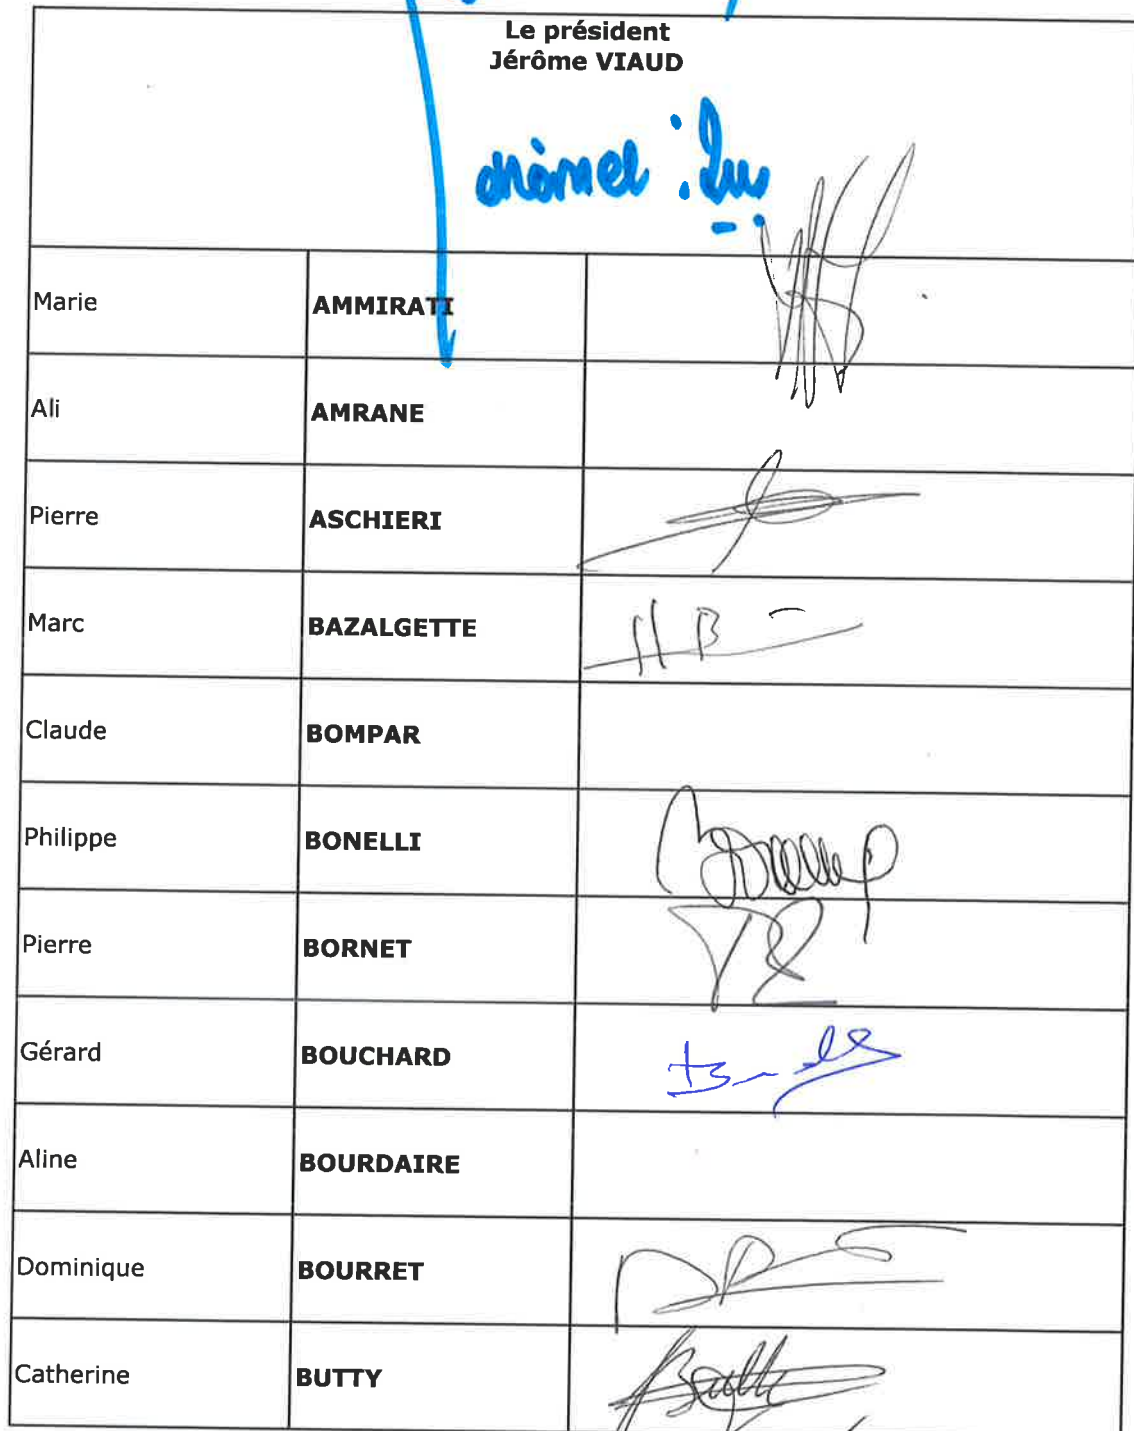 Le président
Jérôme VIAUD
Marie AMMIRATI
Ali AMRANE
Pierre ASCHIERI
Marc BAZALGETTE
Claude BOMPAR
Philippe BONELLI
Pierre BORNET
Gérard BOUCHARD
Aline BOURDAIRE
Dominique BOURRET
Catherine BUTTY